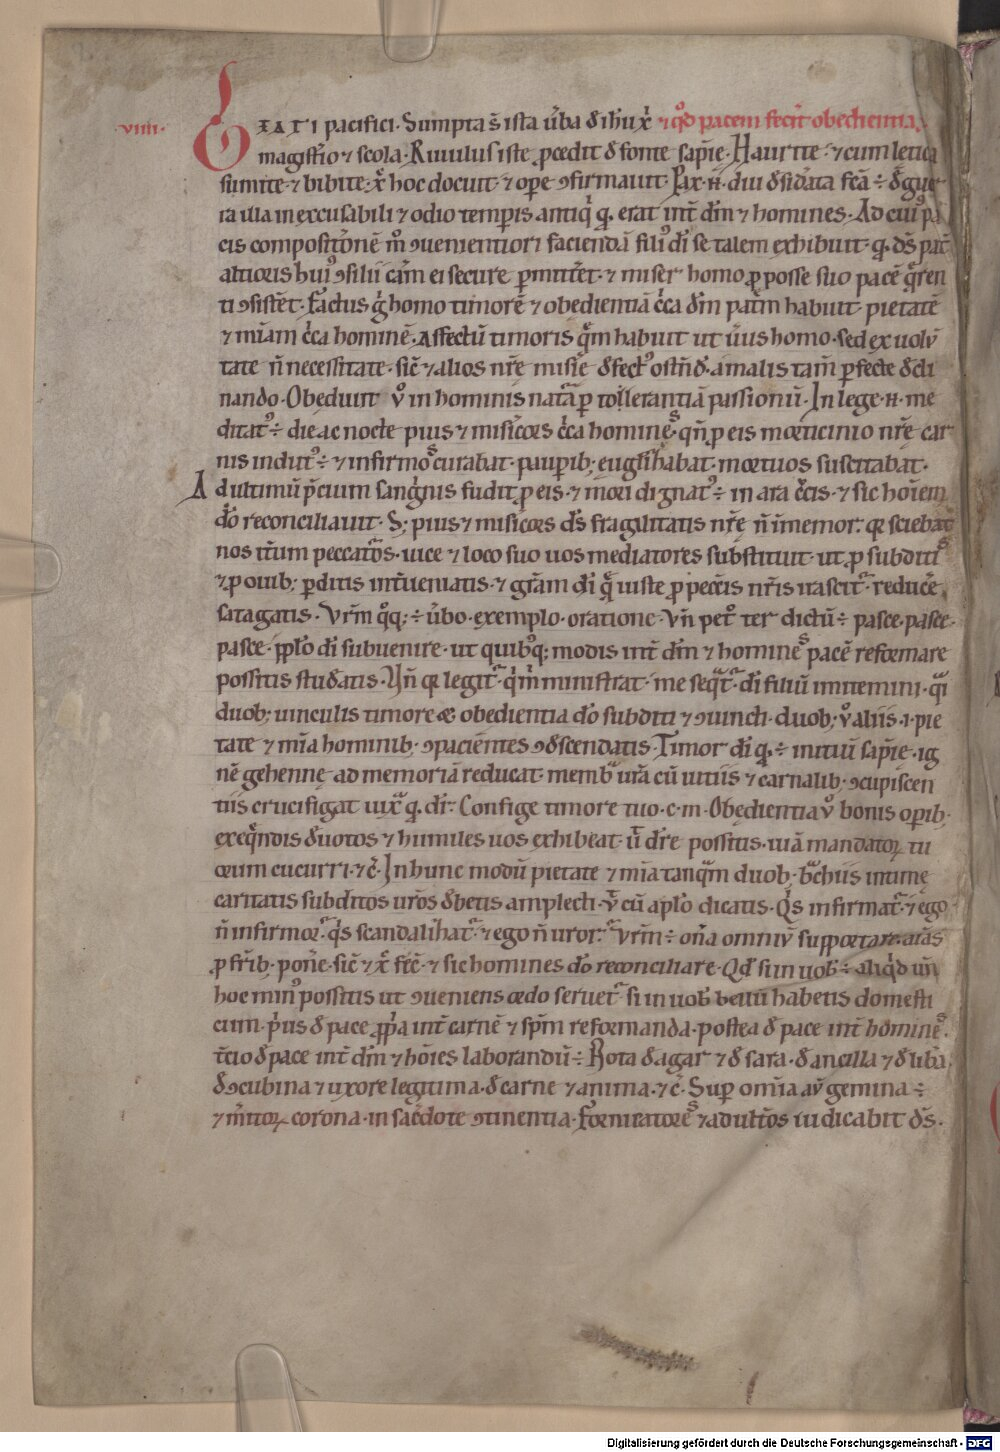 ·viiii·
EATI pacifici. Sumpta s̄ ista ũba đ ih̃u xp̃i ⁊ qđ pacem fecit obedientia.
magisterio ⁊ scola. Riuulus iste ꝓcedit đ fonte sapīe. Haurite ⁊ cum leticia
sumite ⁊ bibite. xp̃c hoc docuit ⁊ oꝑe ꝯfirmauit. Pax .n. diu đsiđata fcā ÷ đ guer
ra illa inexcusabili ⁊ odio temꝑis antiq̇ q. erat int̃ dm̄ ⁊ homines. Ad cui᷒ pa
cis compositōnē m̊ ꝯuenientiori faciendā fili᷒ di se talem exhibuit. q. ds̄ pat̃
altioris hui᷒ ꝯsilii cām ei secure ꝑmitt̃et. ⁊ miser homo ꝓ posse suo pacē q̃ren
ti ꝯsist̃et. Fact᷒ ġ homo timorē ⁊ obedientiā c̃ca dm̄ patrē habuit. pietatē
⁊ miām c̃ca hominē. Affectū timoris q̃m habuit ut uer᷒ homo. sed ex uolū
tate n̄ necessitate. sic̄ ⁊ alios nrē misīe đfect᷒ ostn̄đ. a malis tam̄ ꝑfecte đcli
nando. Obeduit ů in hominis nat̃a ꝑ tollerantiā passionū. In lege .n. me
ditat᷒ ÷ die ac nocte pius ⁊ misic̄ors c̃ca homineˢ. qn̄ ꝓ eis morticinio nrē car
nis indut᷒ ÷ ⁊ infirmoˢ curabat. pauꝑib; euglīhabat. mortuos suscitabat.
Ad ultimū p̃cium sanġnis fudit ꝓ eis. ⁊ mori dignat᷒ ÷ in ara c̃cis. ⁊ sic hoīem
dō reconciliauit. S; pius ⁊ misic̄ors ds̄ fragilitatis nrē n̄ īmemor. qr sciebat
nos it̃um peccat̃os. uice ⁊ loco suo uos mediatores substituit. ut ꝓ subditiˢ
⁊ ꝓ ouib; ꝑditis int̃ueniatis. ⁊ gr̄am di q̃ iuste ꝓ pecc̄is nr̄is irascit̃. reducē
satagatis. Vrm̄ q̊q; ÷ ũbo. exemplo. oratione. Vn̄ pet̊ ter dictū ÷ pasce. pasce.
pasce. pplō di subuenire. ut quib᷒q; modis int̃ dm̄ ⁊ homineˢ pacē reformare
possitis studatis. Vn̄ qr legit̃ q̇ m̃ ministrat. me seq̃t̃. di filiū imitemini. q̃i
duob; uinculis timore & obedientia dō subditi ⁊ ꝯuincti. duob; ů aliis .i. pie
tate ⁊ mīa hominib; ꝯpacientes ꝯđscendatis. Timor di q. ÷ initiū sapīe. ig
nē gehennę ad memoriā reducat. memb̃ urā cū uitiis ⁊ carnalib; ꝯcupiscen
tiis crucifigat iux̃ q. dr̄. Confige timore tuo .c.m. Obedientia ů bonis oꝑib;
exeq̃ndis đuotos ⁊ humiles uos exhibeat. ũ đre possitis. uiā mandatoꝝ tu
orum cucurri. ⁊c̃. In hunc modū pietate ⁊ mīa tanq̃m duob; b̃chiis intime
caritatis subditos ur̄os đbetis amplecti. ũ cū aplō dicatis. Q̇s infirmat̃. ⁊ ego
n̄ infirmor. q̇s scandalīhat̃. ⁊ ego n̄ uror. Vrm̄ ÷ on̄a omniū supportare. aīas
ꝓ frīb; pon̄e. sic̄ ⁊ xp̃c fec̄. ⁊ sic homines dō reconciliare. Qđ si in uob᷒ ÷ aliq̇d un̄
hoc min᷒ possitis ut ꝯueniens ordo seruet̃ si in uob᷒ bellū habetis domesti
cum. p̃us đ pace ꝓp̃a int̃ carnē ⁊ spm̄ reformanda. postea đ pace int̃ homineˢ.
t̃cio đ pace int̃ dm̄ ⁊ hoīes laborandū ÷ Nota đ agar ⁊ đ sara. đ ancilla ⁊ đ lib̃a.
đ ꝯcubina ⁊ uxore legitima. đ carne ⁊ anima. ⁊c̃. Suꝑ omīa aū gemina ÷
⁊ m̃itoꝝ corona. in sac̃dote ꝯtinentia. Fornicatoreˢ ⁊ adult̃os iudicabit ds̄.
Digitalisierung gefördert durch die Deutsche Forschungsgemeinschaft - DFG